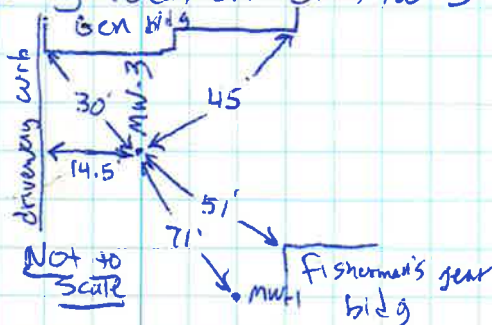 Gen bldg
driveway curb
MW-3
30'
45'
14.5'
51'
71'
Not to
Scale
MW-1
Fisherman's gear
bldg